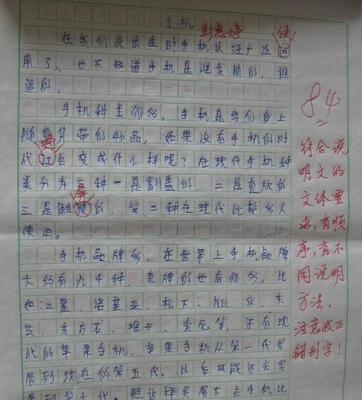 手机
在我们没出生时手机就被广泛运
用了，也不知道手机是谁发明的，谁
造的。
手机种类很多，手机是我们身上
随身携带的物品，如果没有手机的时
代会变成什么样呢？在现代手机种
类分为三种一是翻盖的，二是直板的
三是触摸的，第三种在现代比较多人
使用。
手机品牌多，在世界上手机品牌
大约有几千种，杂牌的也有很多，比
如：三星、诺基亚、松下、NEC、东
芝、索尼等，还有现
代的苹果手机，苹果手机从第一代发
展到现在的第五代，比后可能还会发
展到第十代。照这样发展下去手机比
84
符合说
明文的
文体要
求，有顺
序，有不
同说明
方法。
注意改正
错别字！